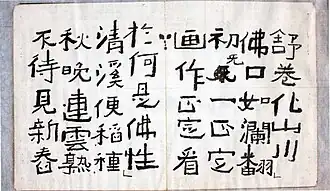 舒卷化山川
佛口如瀾翻
初无一正定
画作正定看
於何是佛性
清溪便稻種
秋晚連雲熟
不待見新舂